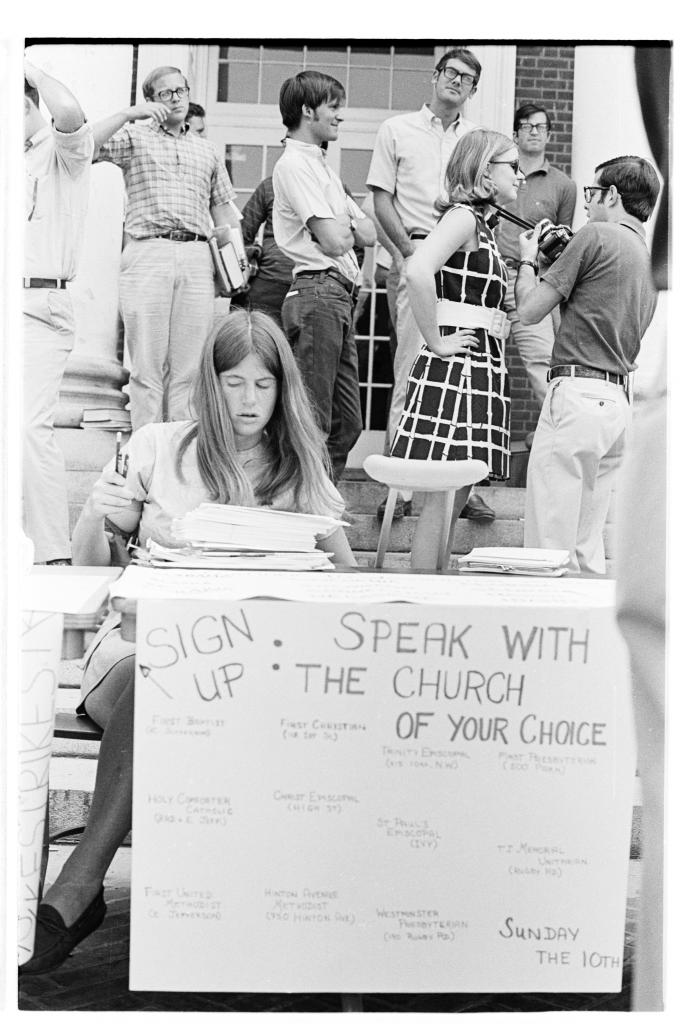 SIGN UP : SPEAK WITH
THE CHURCH
OF YOUR CHOICE
FIRST BAPTIST
(E. JEFFERSON)
FIRST CHRISTIAN
(118 1ST ST.)
TRINITY EPISCOPAL
(415 10TH, N.W)
FIRST PRESBYTERIAN
(500 PARK)
HOLY COMFORTER
CATHOLIC
CHRIST EPISCOPAL
(HIGH ST)
ST PAUL'S
EPISCOPAL
(IVY)
T.J. MEMORIAL
UNITARIAN
(RUGBY RD)
FIRST UNITED
METHODIST
(E JEFFERSON)
HINTON AVENUE
METHODIST
(750 HINTON AVE)
WESTMINSTER
PRESBYTERIAN
(190 RUGBY RD)
SUNDAY
THE 10TH